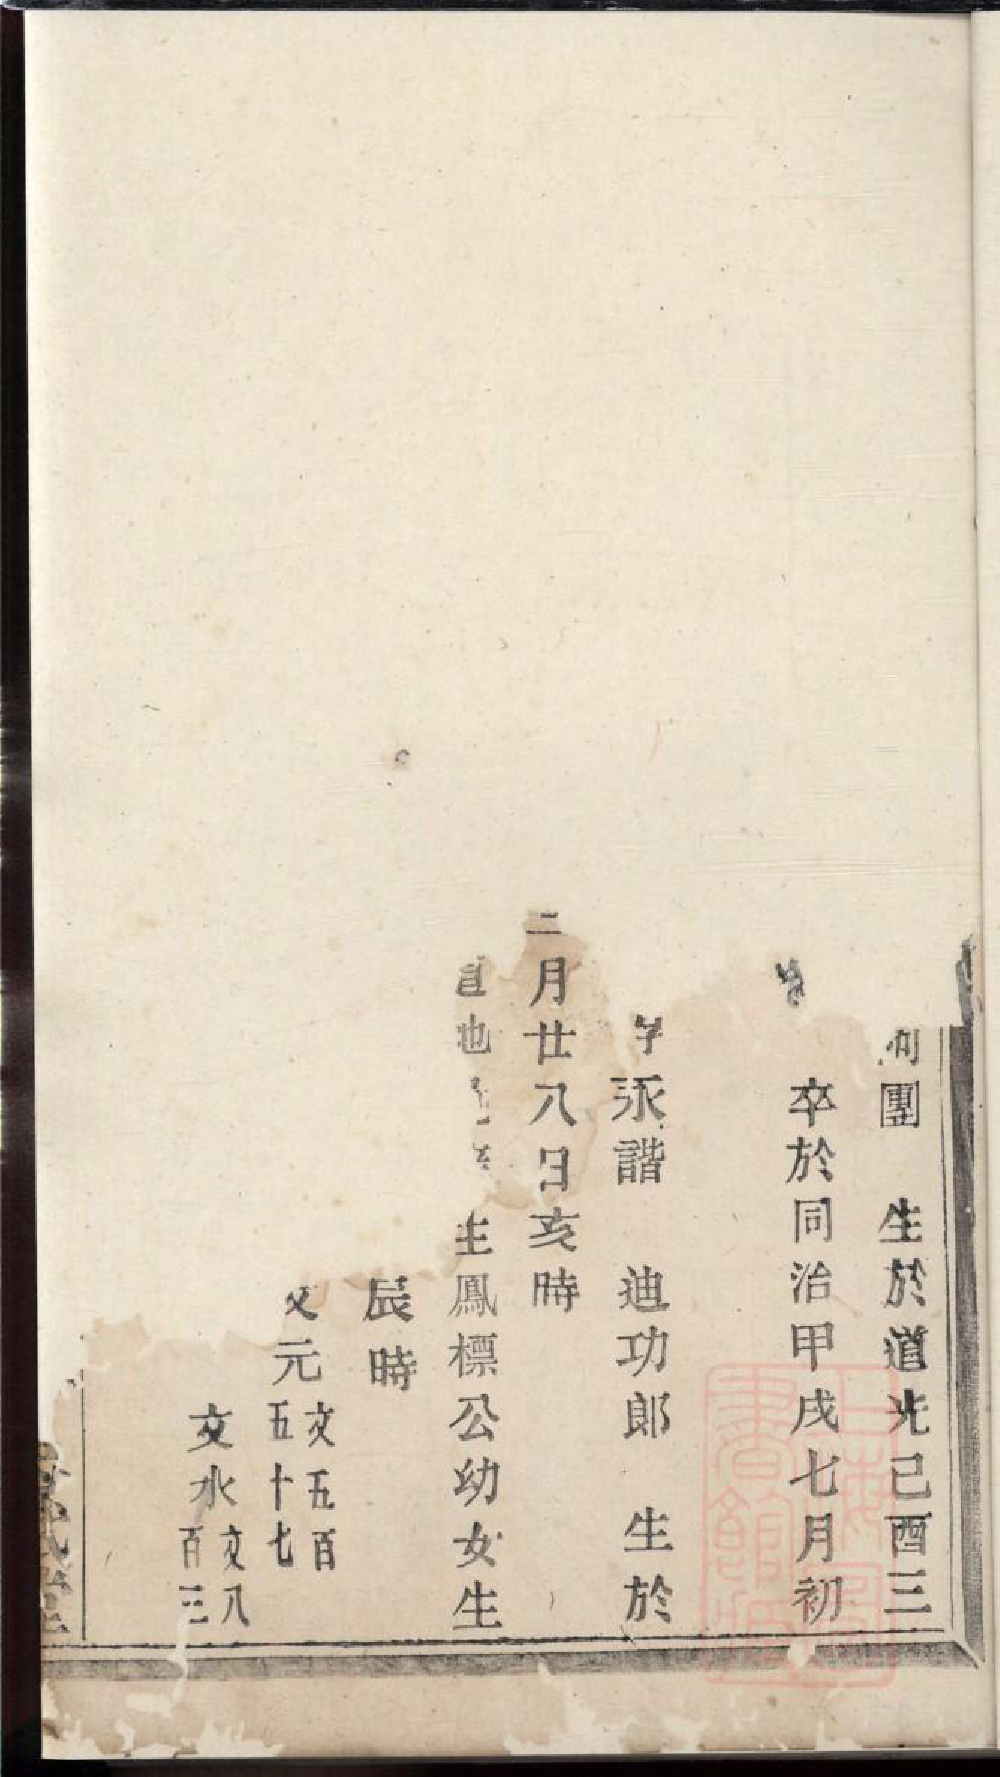 團 生於道光己酉三
卒於同治甲戌七月初
字永諧 迪功郎 生於
二月廿八日亥時
也 主鳳標公幼女生
辰時
文元文五百五十七
文水文八百三